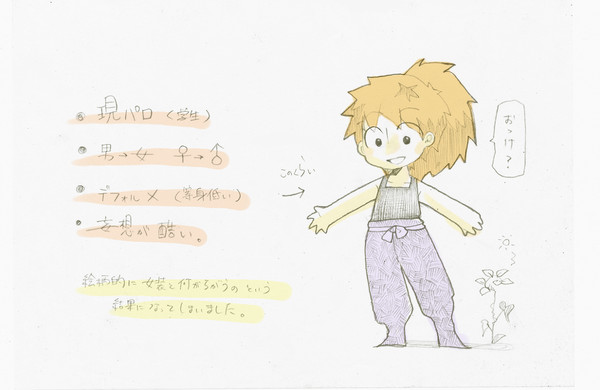 現パロ（学生）
男→女 ♀→♂
デフォルメ（等身低い）
妄想が酷い。
絵柄的に女装と何がちがうのという
結果になってしまいました。
このくらい
→
おっけ？